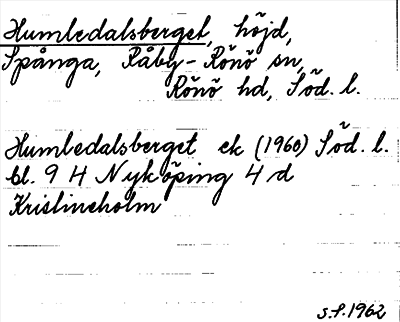 Humledalsberget, höjd,
Spånga, Råby-Rönö sn,
Rönö hd, Söd. l.
Humledalsberget ek (1960) Söd. l.
bl. 9 H Nyköping 4 d
Kristineholm
S.F. 1962